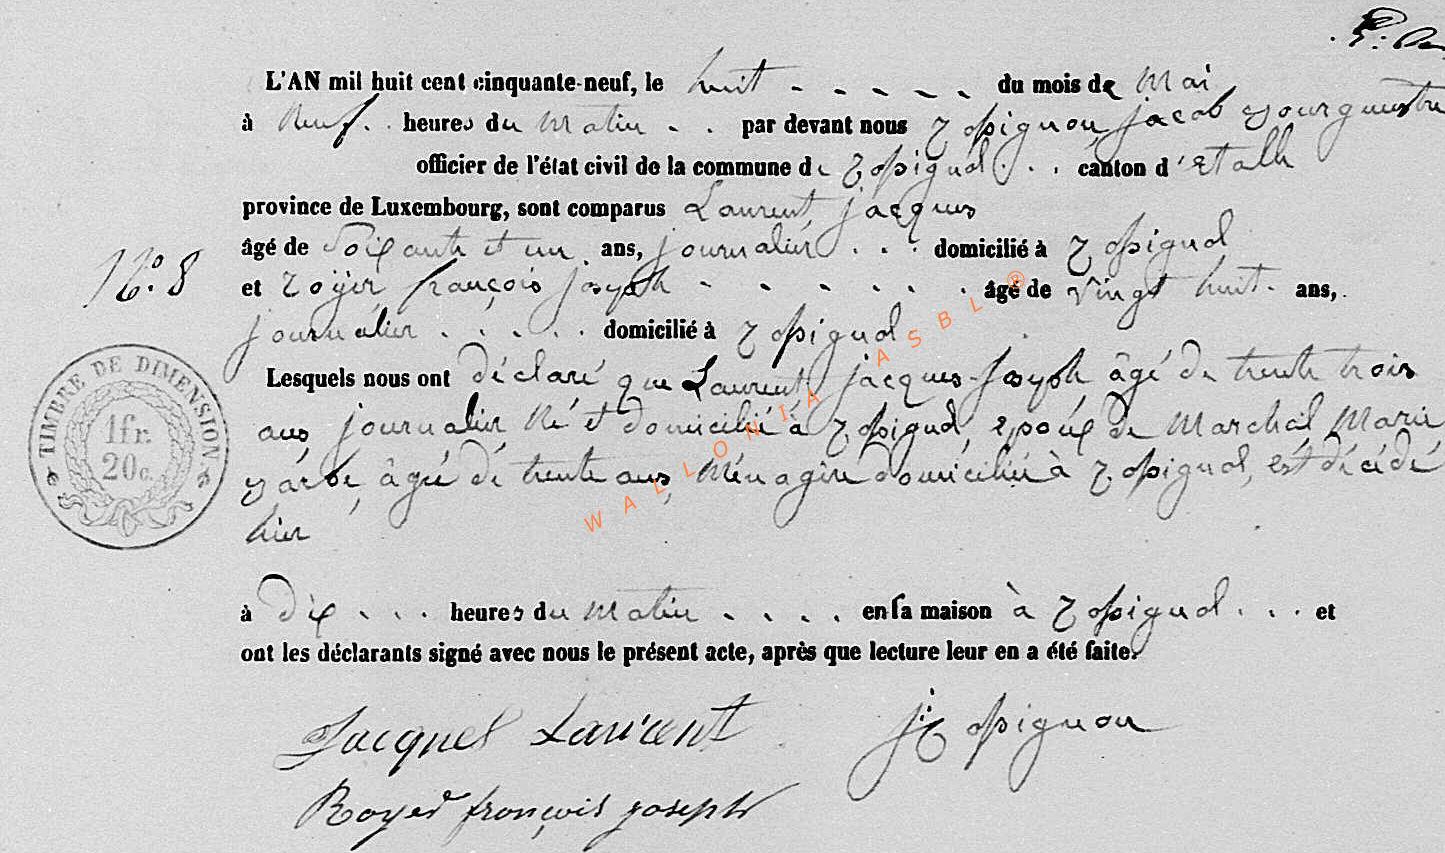 L'AN mil huit cent cinquante-neuf, le huit - - - - - du mois de Mai
à Neuf . . heures du Matin - . par devant nous Rossignon, Jacob Bourguestre
officier de l'état civil de la commune de Rossignol . . . canton d'Etalle
province de Luxembourg, sont comparus Laurent, Jacques
âgé de Soixante et un ans, journalier . . . domicilié à Rossignol
N°. 8
et Royer françois Joseph - - - - - . âgé de Vingt huit. ans,
journalier . . . . . domicilié à Rossignol
TIMBRE DE DIMENSION
1fr.
20c.
Lesquels nous ont déclaré que Laurent, Jacques-Joseph âgé de trente trois
ans journalier Né et domicilié à Rossignol, époux de Marchal Marie
Barbe, âgée de trente ans, Ménagère domiciliée à Rossignol, est décédé
hier
à dix . . . heures du Matin . . . . en sa maison à Rossignol . . . et
ont les déclarants signé avec nous le présent acte, après que lecture leur en a été faite.
Jacques Laurent J: Rossignon
Royer françois joseph
WALLONIA ASBL ®